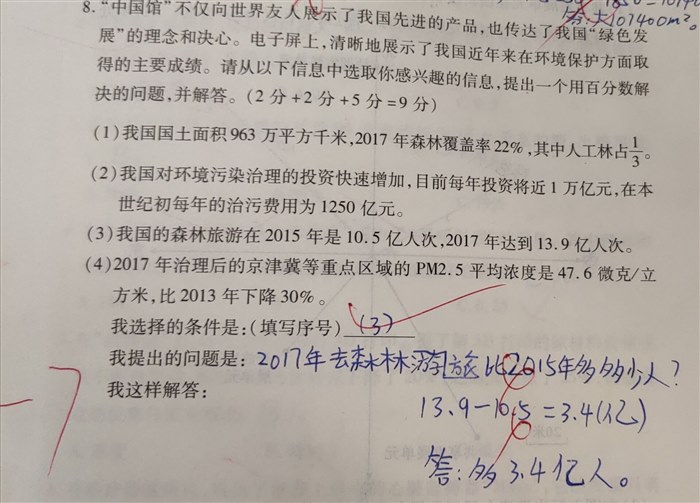 答:大107400m²。
8.“中国馆”不仅向世界友人展示了我国先进的产品,也传达了我国“绿色发
展”的理念和决心。电子屏上,清晰地展示了我国近年来在环境保护方面取
得的主要成绩。请从以下信息中选取你感兴趣的信息,提出一个用百分数解
决的问题,并解答。(2分+2分+5分=9分)
(1)我国国土面积963万平方千米,2017年森林覆盖率22%,其中人工林占1/3。
(2)我国对环境污染治理的投资快速增加,目前每年投资将近1万亿元,在本
世纪初每年的治污费用为1250亿元。
(3)我国的森林旅游在2015年是10.5亿人次,2017年达到13.9亿人次。
(4)2017年治理后的京津冀等重点区域的PM2.5平均浓度是47.6微克/立
方米,比2013年下降30%。
我选择的条件是:(填写序号)(3)
我提出的问题是:2017年去森林游旅比2015年多多少人?
我这样解答:
13.9-10.5=3.4(亿)
-7
答:多3.4亿人。